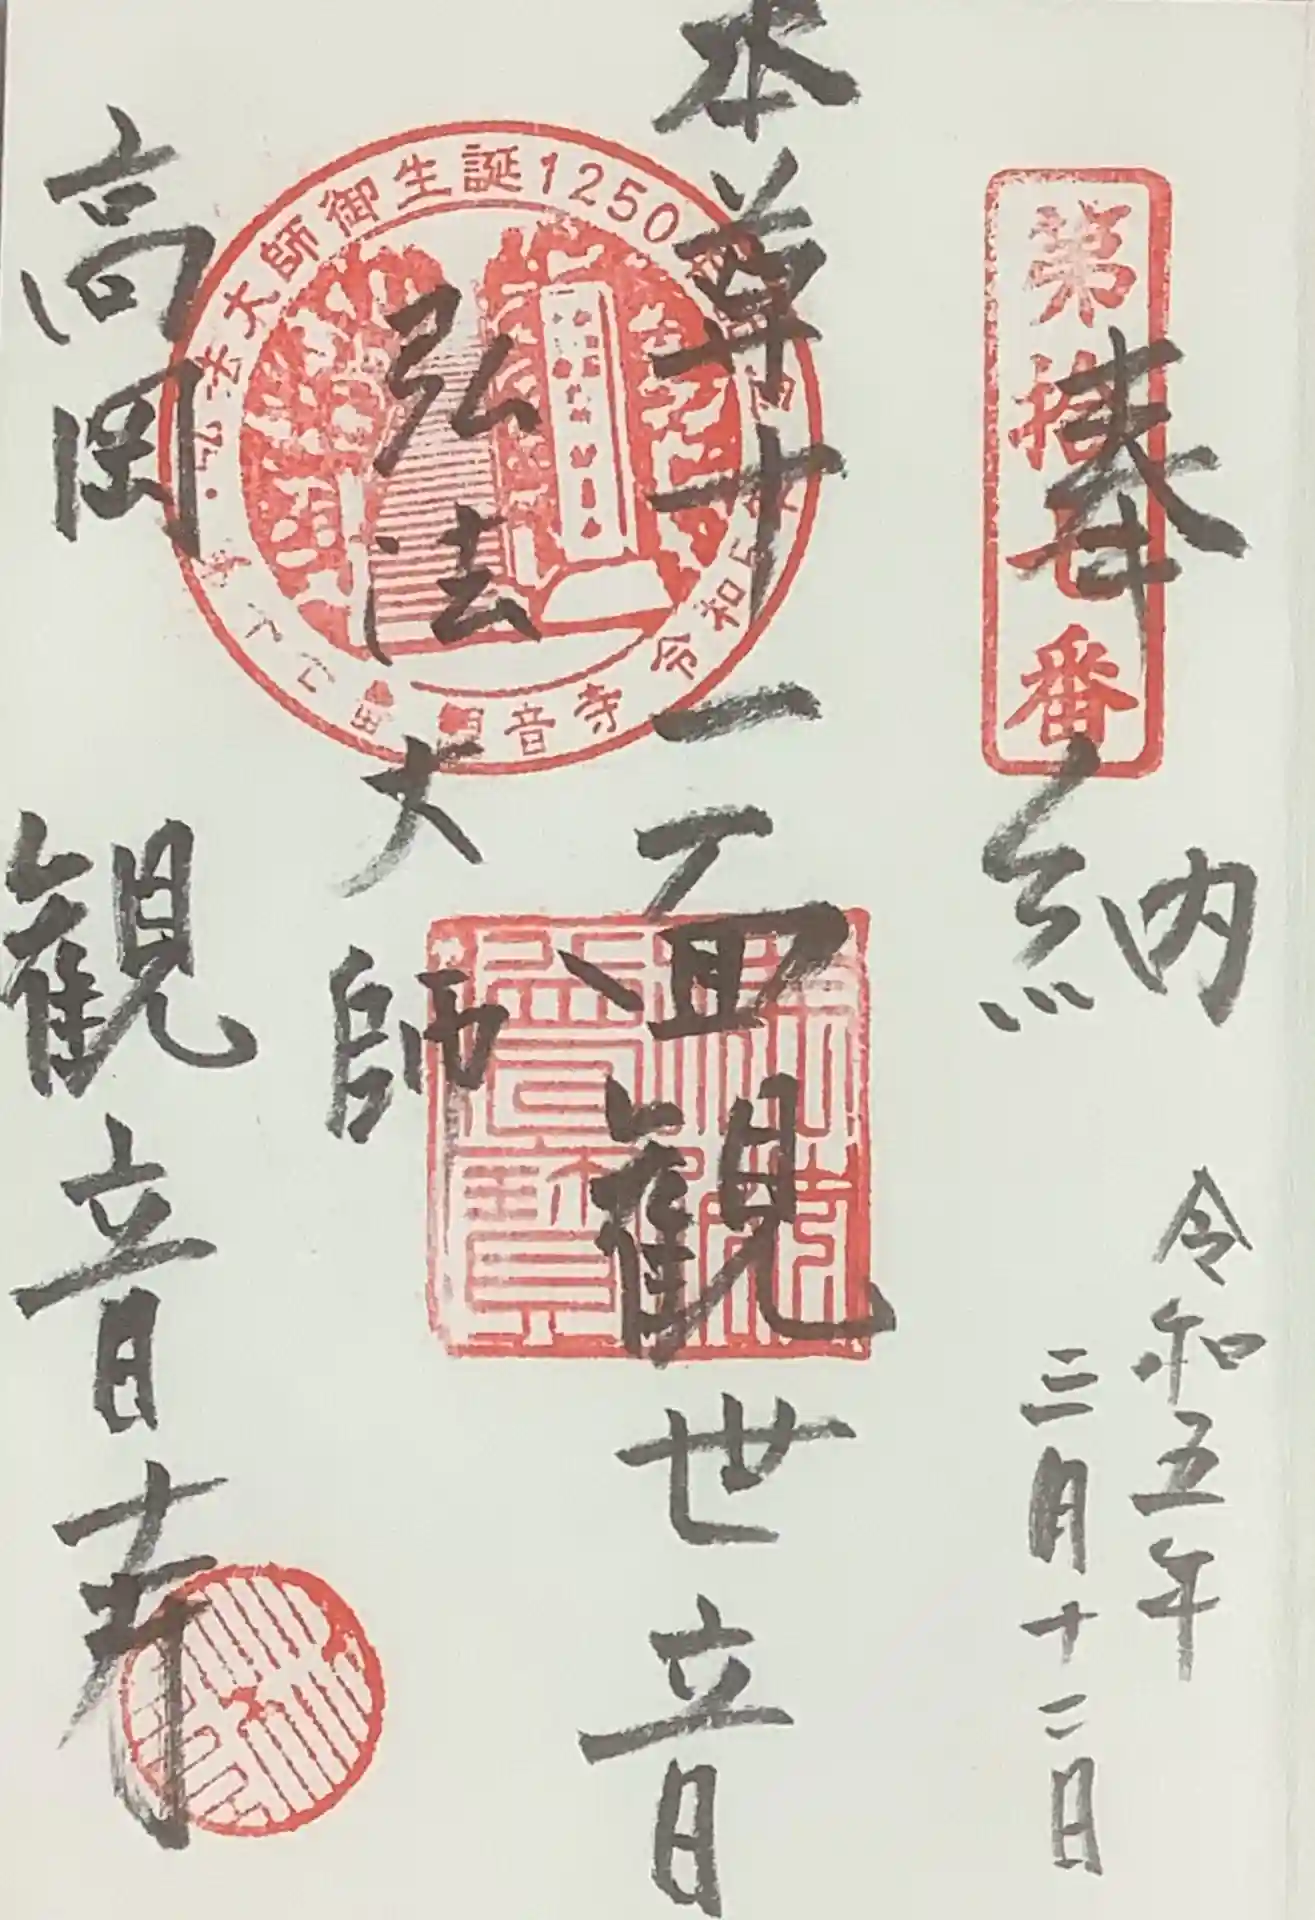 奉納
令和五年
三月十二日
第拾七番
本尊十一面観世音
弘法大師
高岡
観音寺
弘法大師御生誕1250
令和
音寺